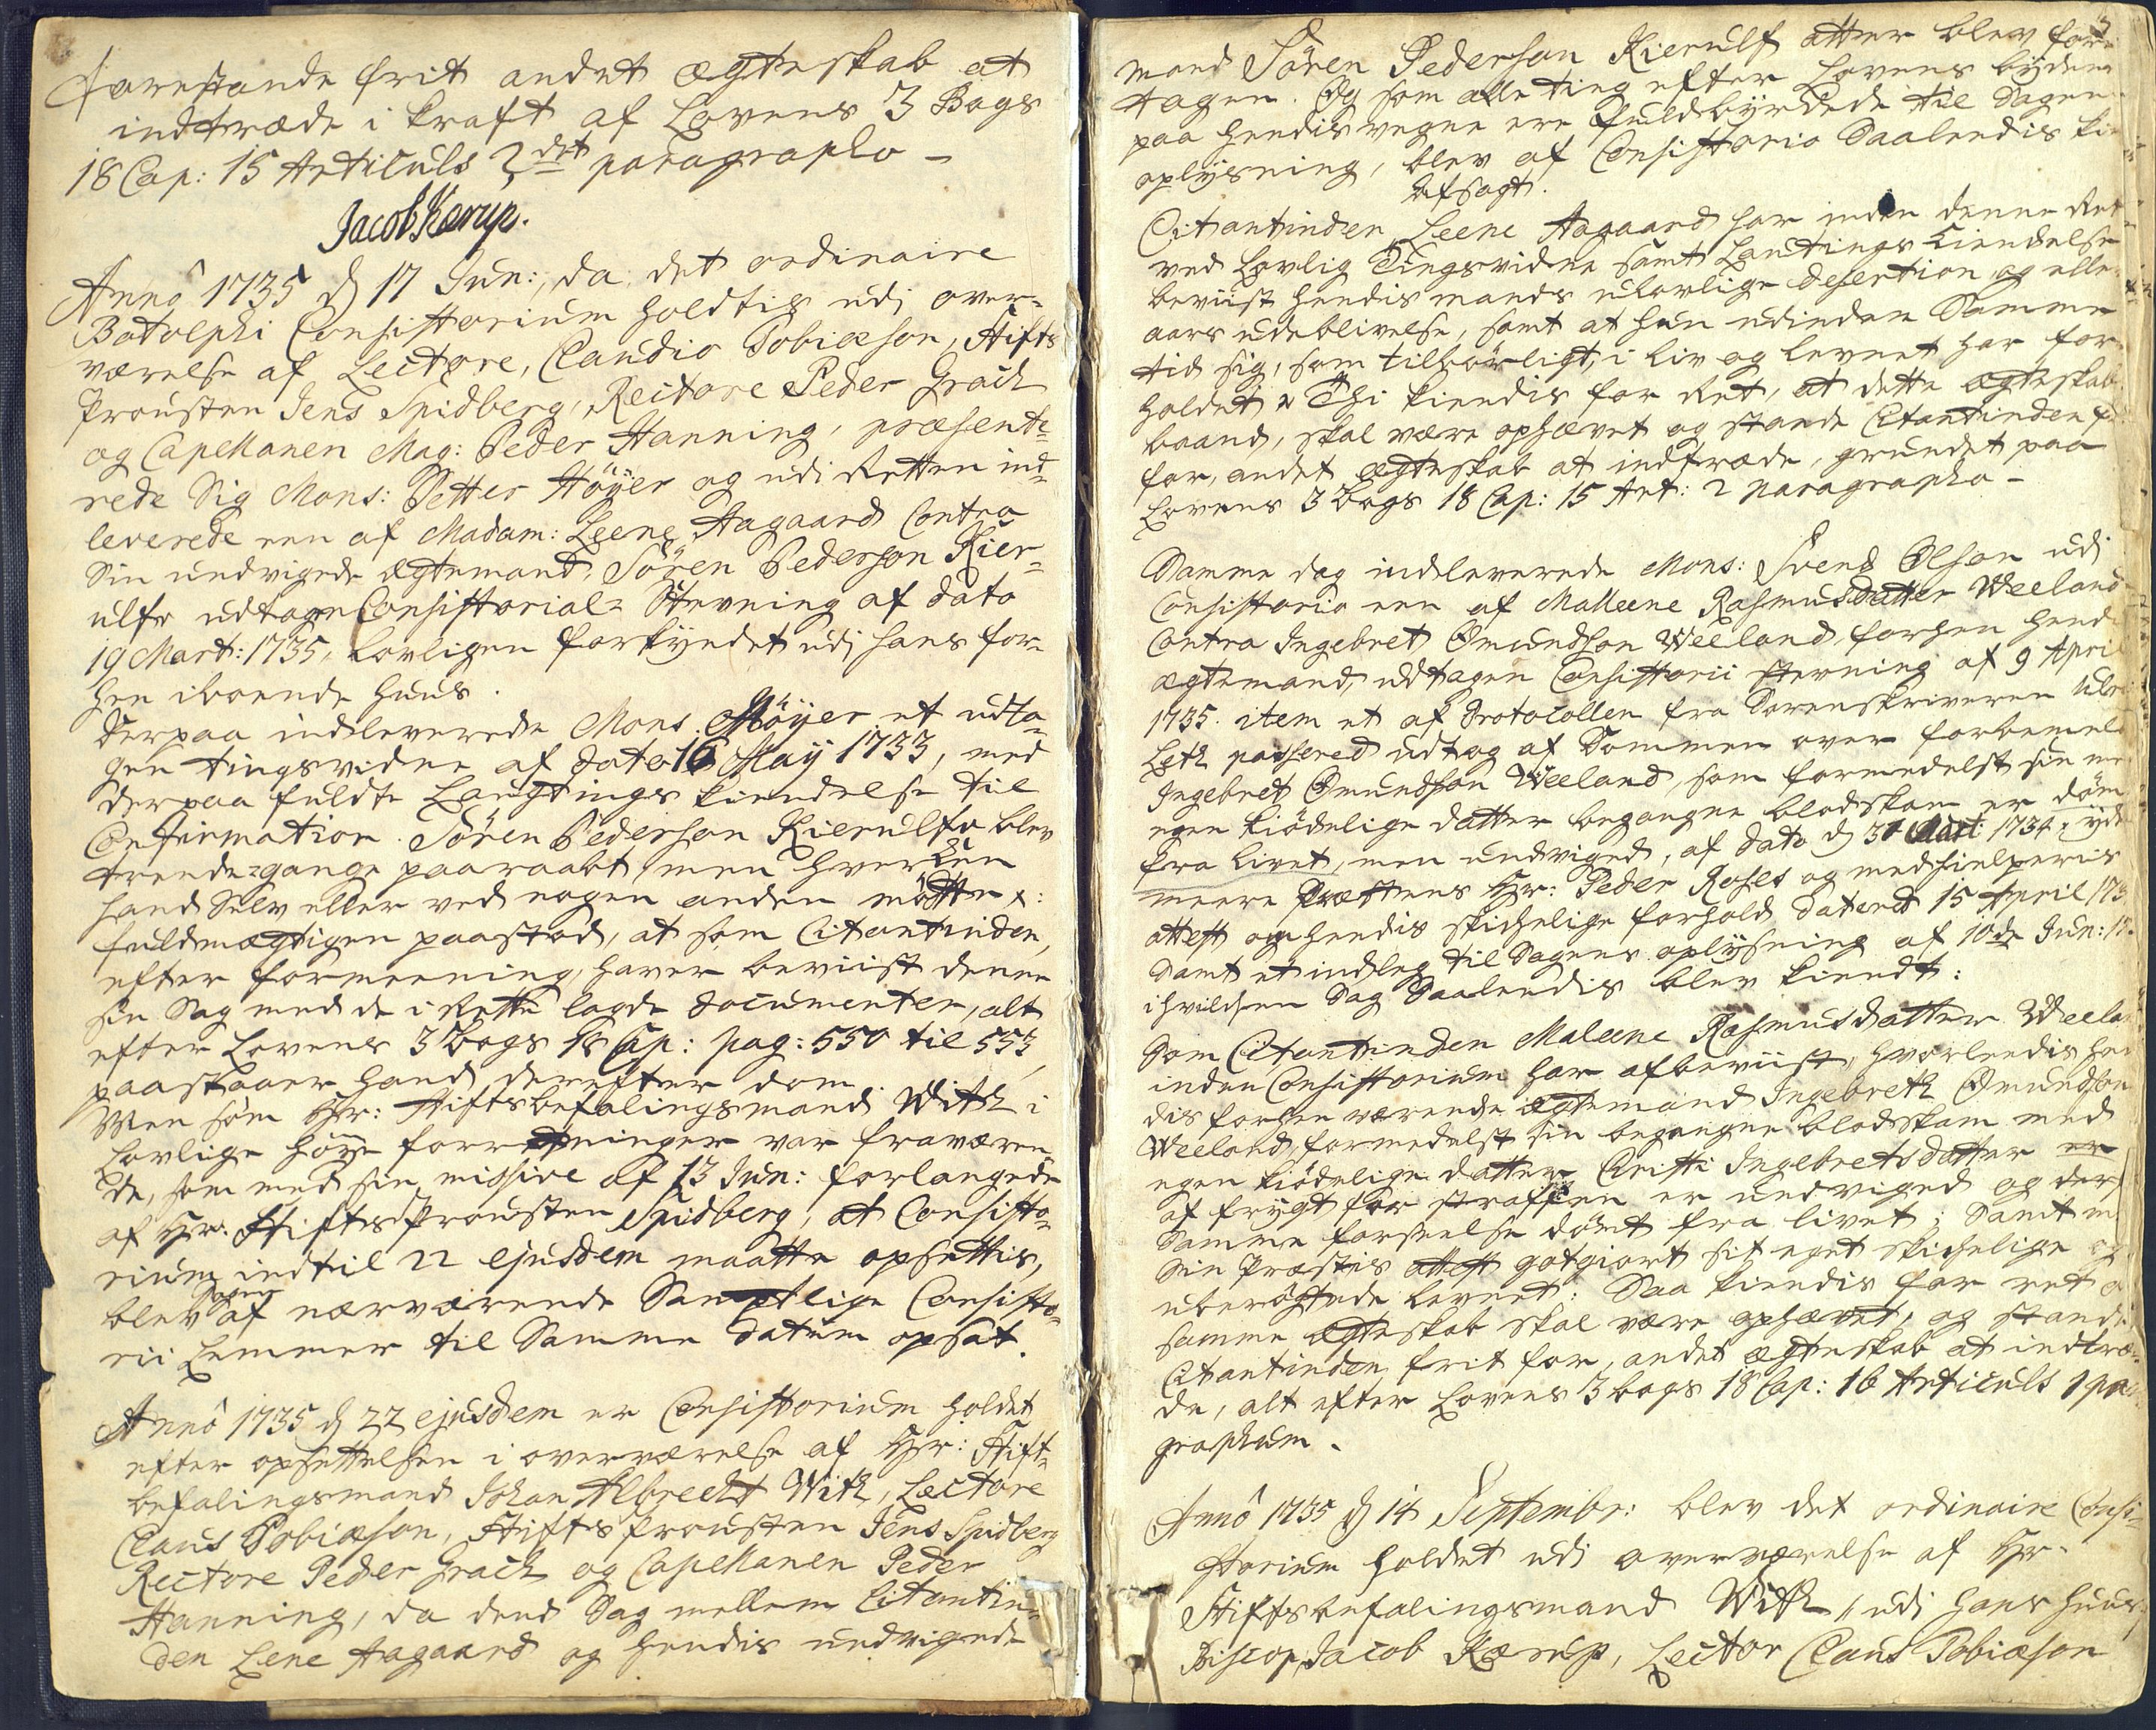 forestaande frit andet ægteskab at
indtræde i kraft af Lovens 3 Bogs
18 Cap: 15 Articuls 2det paragrapho –
Jacob Kærup.
Anno 1735 d 17 Jun:, da det ordinaire
Botolphi Consistorium holdtis udj over-
værelse af Lectore, Claudio Tobiæson, Stifts
Prousten Jens Spidberg, Rectore Peder Grach
og Capellanen Mag: Peder Hanning, præsente-
rede sig Mons: Petter Höyer og udi Retten ind-
leverede een af Madam: Leene Aagaard Contra
sin undvigede ægtemand, Sören Pederson Kier-
ulfv udtagen Consistorial- Stevning af dato
19 Mart: 1735, lovligen forkyndet udj hans for-
hen iboende huus.
Derpaa indleverede Mons. Höyer et udta-
gen tingsvidne af dato 16 Maij 1733, med
derpaa fuldte Laugtings kiendelse til
Confirmation. Sören Pederson Kierulfv blev
trende gange paaraabt, men hverken
hand selv eller ved nogen anden mötte:
fuldmægtigen paastod, at som Citantinden,
efter formeening, haver beviist denne
sin Sag med de i Rette lagde documenter, alt
efter Lovens 3 Bogs 18 Cap: pag: 550 til 553,
paastaaer hand derefter dom.
Men som Hr: Stiftsbefalingsmand With i
Lovlige höye forretninger var fraværen-
de, som med sin missive af 13 Jun: forlangede
af Hr. StiftsProusten Spidberg, at Consisto-
rium indtil 22 ejusdem maatte opsettis,
blev Sagen af nærværende Samptlige Consisto-
rii Lemmer til Samme datum opsat.
Anno 1735 d 22 ejusdem er Consistorium holdet
efter opsettelsen i overværelse af Hr: Stift-
befalingsmand Johan Albrecht With, Lectore
Claus Tobiæson, Stifts Prousten Jens Spidberg
Rectore Peder Grach og Capellanen Peder
Hanning, da dend Sag mellem Citantin-
den Lene Aagaard og hendis undvigede
mand Sören Pederson Kierulf atter blev fore
tagen. Og som alle ting efter Lovens bydende
paa hendis vegne ere fuldbyrdede til Sagens
oplysning, blev af Consistorio Saaledis
afsagt.
Citantinden Leene Aagaard har inden denne Ret
ved Lovlig Tingsvidne samt Lautings kiendelse
beviist hendis mands ulovlige desertion og
aars udeblivelse, samt at hun udinden Samme
tid sig, som tilbörligt, i liv og levnet har for-
holdet. Thi kiendis for Ret, at dette ægteskabs
baand, skal være ophævet og stande Citantinden
for, andet ægteskab at indtræde, grundet paa
Lovens 3 bogs 18 Cap: 15 Art: 2 paragrapho –
Samme dag indleverede Mons: Svend Olson udj
Consistorio een af Malleene Rasmusdatter Weeland
Contra Ingebret Omundson Weeland, forhen hendis
ægtemand, udtagen Consistorii Stevning af 9 April
1735. item et af Protocollen fra Sorenskriveren
Leth passered udtog af Dommen over forbemelte
Ingebret Omundson Weeland, som formedelst sin med
egen kiödelige datter begangne blodskam er döm
fra livet, men undviged, af dato d 31 Mart: 1734,
meere Præstens Hr: Peder Roses og medhielperis
attest om hendis skichelige forhold dateret 15 April 173
Samt et indleg til Sagens oplysning af 10de Jun:
i hvilcken Sag Saaledis blev kiendt:
Som Citantinden Maleene Rasmusdatter Weeland
inden Consistorium har afbeviist, hvorledis hen-
dis forhen værende ægtemand Ingebreth Omundson
Weeland, formedelst sin begangne blodskam med
egen kiödelige datter Christi Ingebretsdatter er
af frygt for straffen er undviged og der
Samme forseelse dömt fra livet; Samt
Sin Præstis attest gotgiort sit eget skichelige og
uberögtede levnet: Saa kiendis for ret
samme ægteskab skal være ophævet, og stande
Citantinden frit for, andet ægteskab at indtræ-
de, alt efter Lovens 3 bogs 18 Cap: 16 Articuls 1 para
graphum.
Anno 1735 d 14 Septembr: blev det ordinaire Consi-
storium holdet udi overværelse af Hr.
Stiftsbefalingsmand With, udi hans huus
Biscop Jacob Kærup, Lector Claus Tobiæson